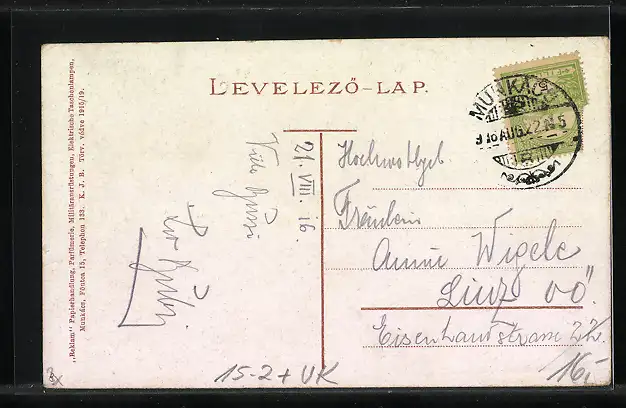 LEVELEZŐ-LAP.
„Reklam" Papierhandlung, Parfümerie, Militärausrüstungen, Elektrische Taschenlampen,
Munkács, Főutca 15, Telephon 133. K. J. B. Törv. védve 1915/19.
MUNKÁCS
916 AUG. 22. N 5
21. VIII. 16.
Viele Grüsse
Hochwohlgeb
Fräulein
Anni Wigele
Linz OÖ.
Eisenhandstrasse 22.
15-2+ VK
16,-